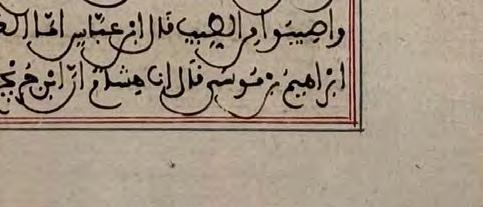 واصيبوا من الطيب قال ابن عباس اما ا
ابراهيم بن موسى قال انا هشام ان ابن جريج